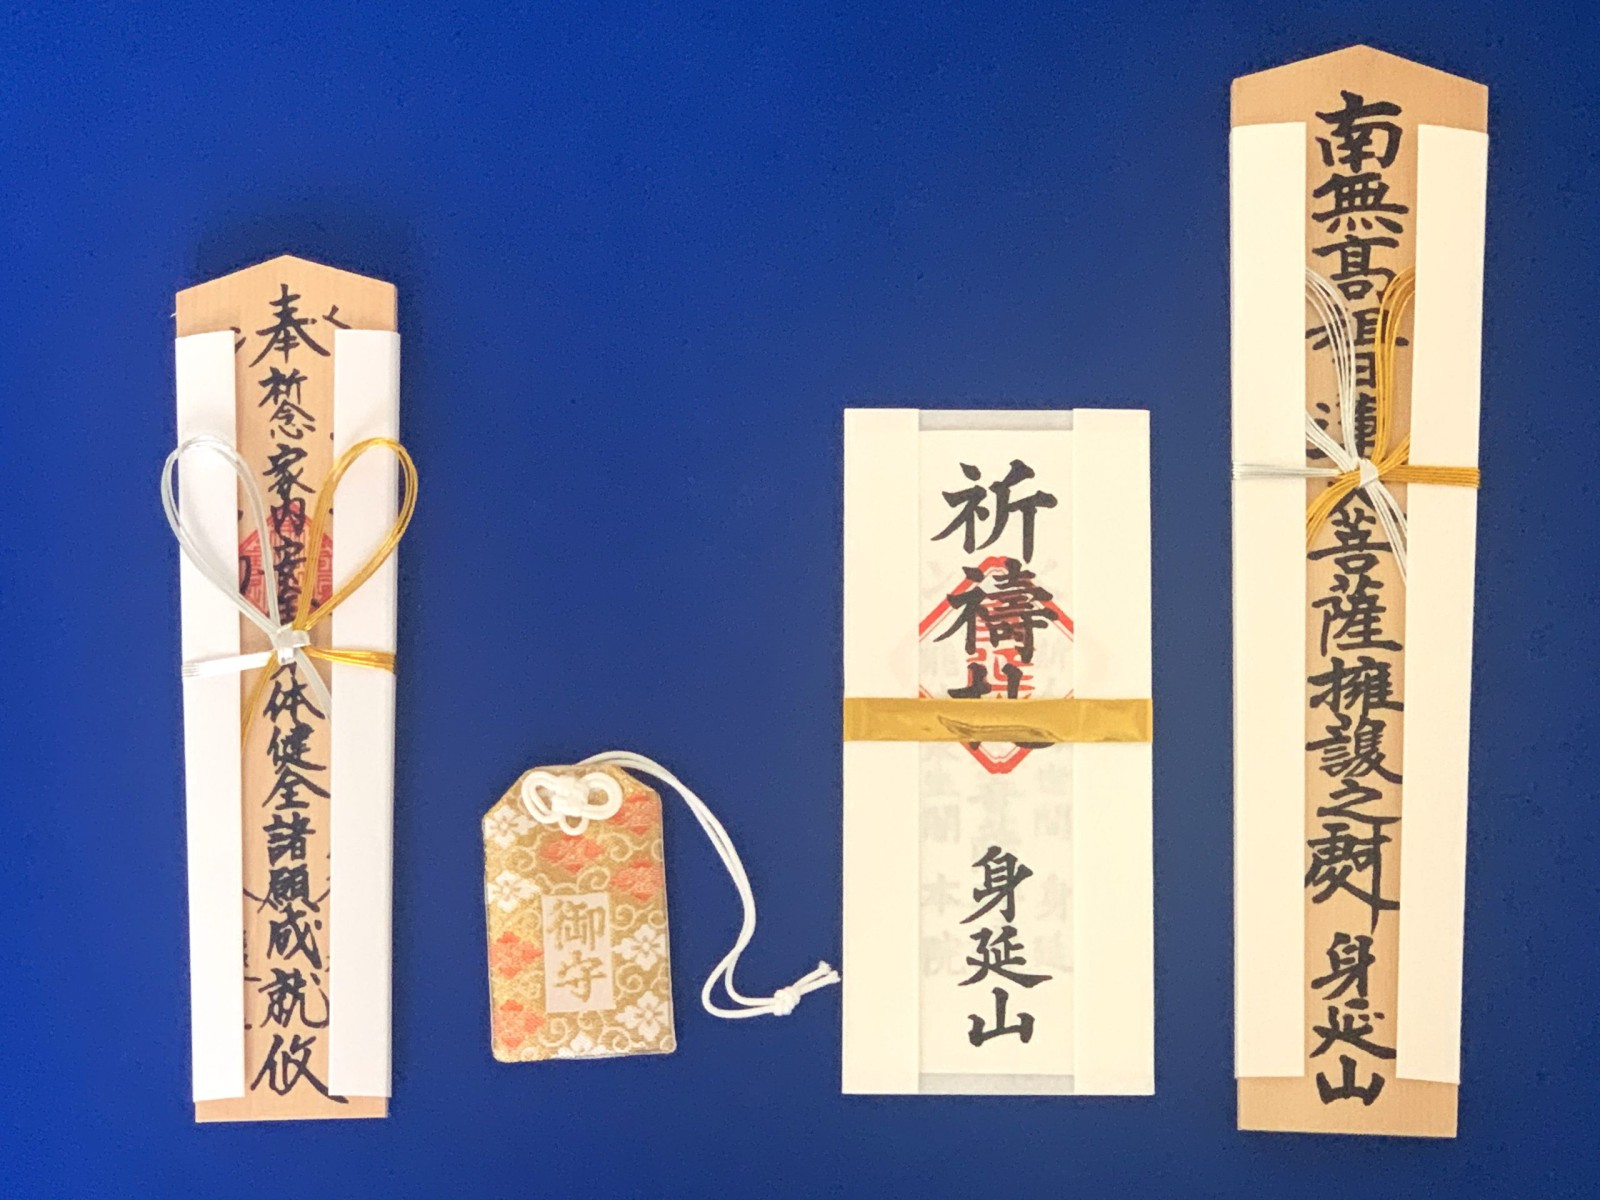 奉祈念家内安全身体健全諸願成就攸
御守
祈禱札
身延山
南無高祖日蓮大菩薩擁護之
身延山